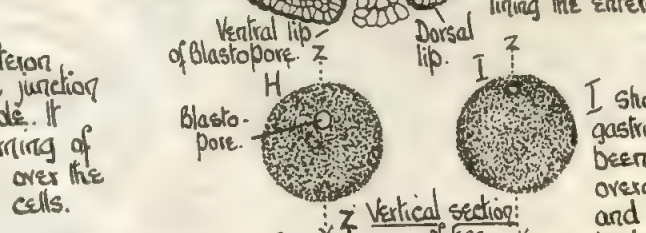 lining the enter
Ventral lip
of Blastopore.
Dorsal
lip.
Z
Z
H
I
teron
junction
de. It
rning of
over the
cells.
Blasto-
pore.
I sho
gastru
been
overg
and
Z
Vertical section